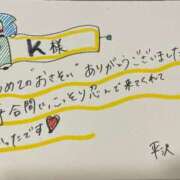 K 様
めての"おさそい"ありがとうございました
合間でこっそり忍んで来てくれて
ったです
平沢